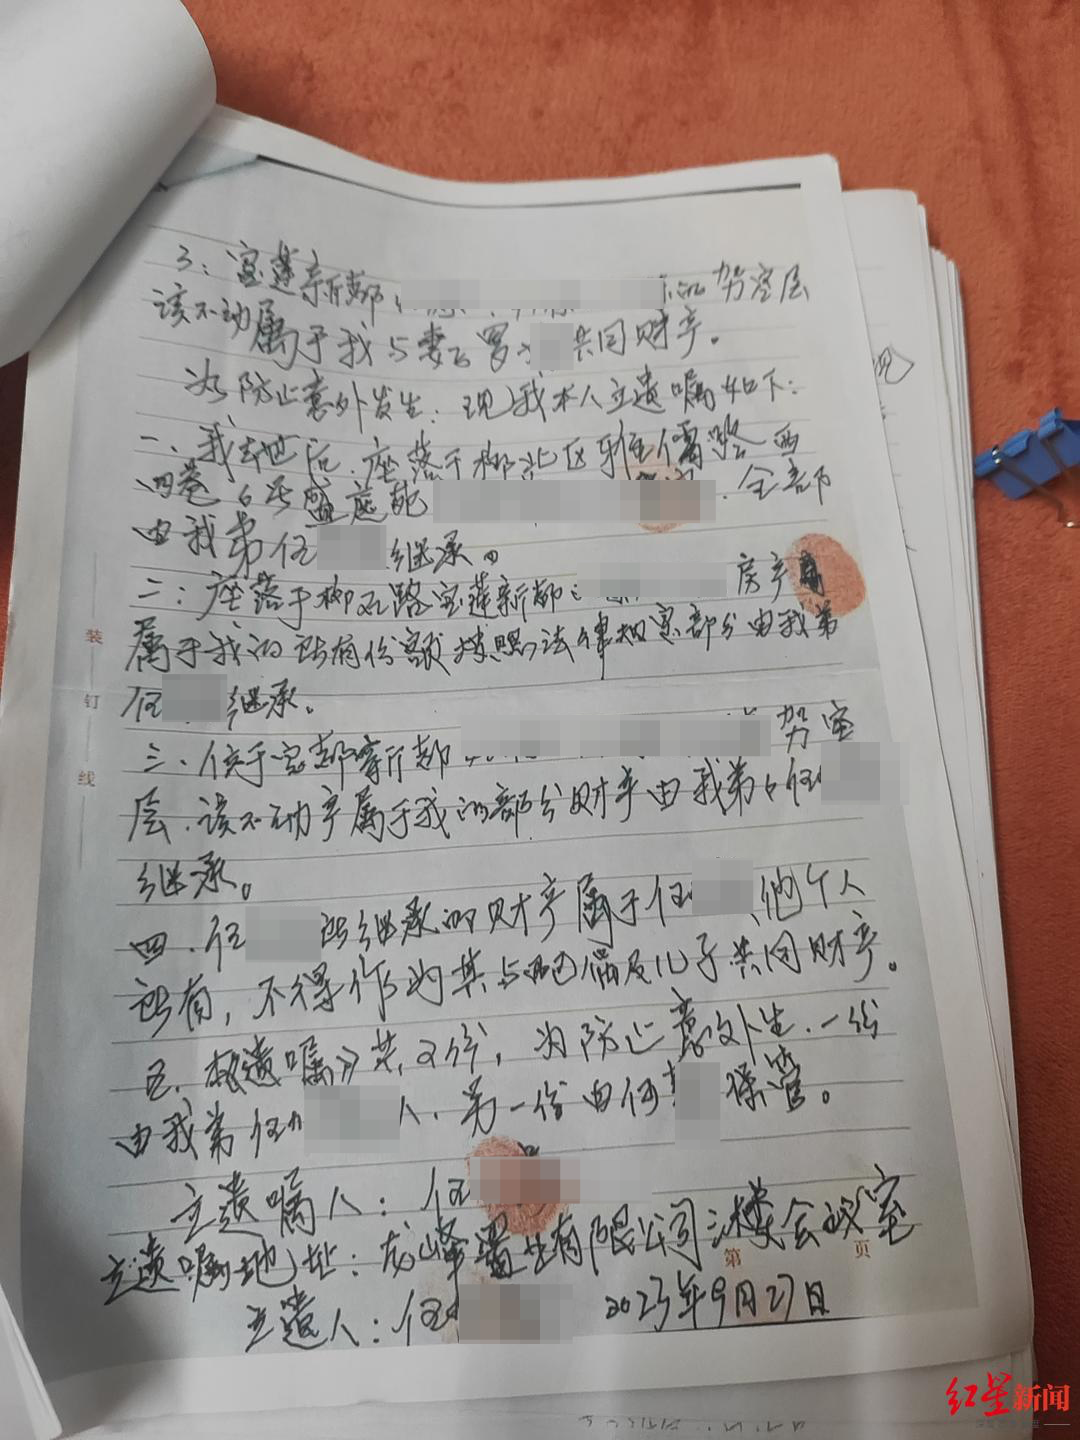 3：宝莲新都 架空层
该不动属于我与妻子罗 共同财产。
为防止意外发生．现我本人立遗嘱如下：
一、我去世后．座落于柳北区雅儒路西
四巷6号 全部
由我弟伍 继承。
二：座落于柳石路宝莲新都 房产
属于我的所有份额 按照法律规定部分由我弟
伍 继承。
三、位于 新都 架空
层．该不动产属于我的部分财产由我弟 伍
继承。
四．伍 所继承的财产属于伍 他个人
所有，不得作为其与配偶及儿子共同财产。
五．本遗嘱 共 份，为防止意外 生．一份
由我弟伍 人．另一份由何 保管。
立遗嘱人：伍
立遗嘱地址：龙峰 有限公司 楼会议室
立遗人：伍 2023年9月27日
装
钉
线
第 页
红星新闻